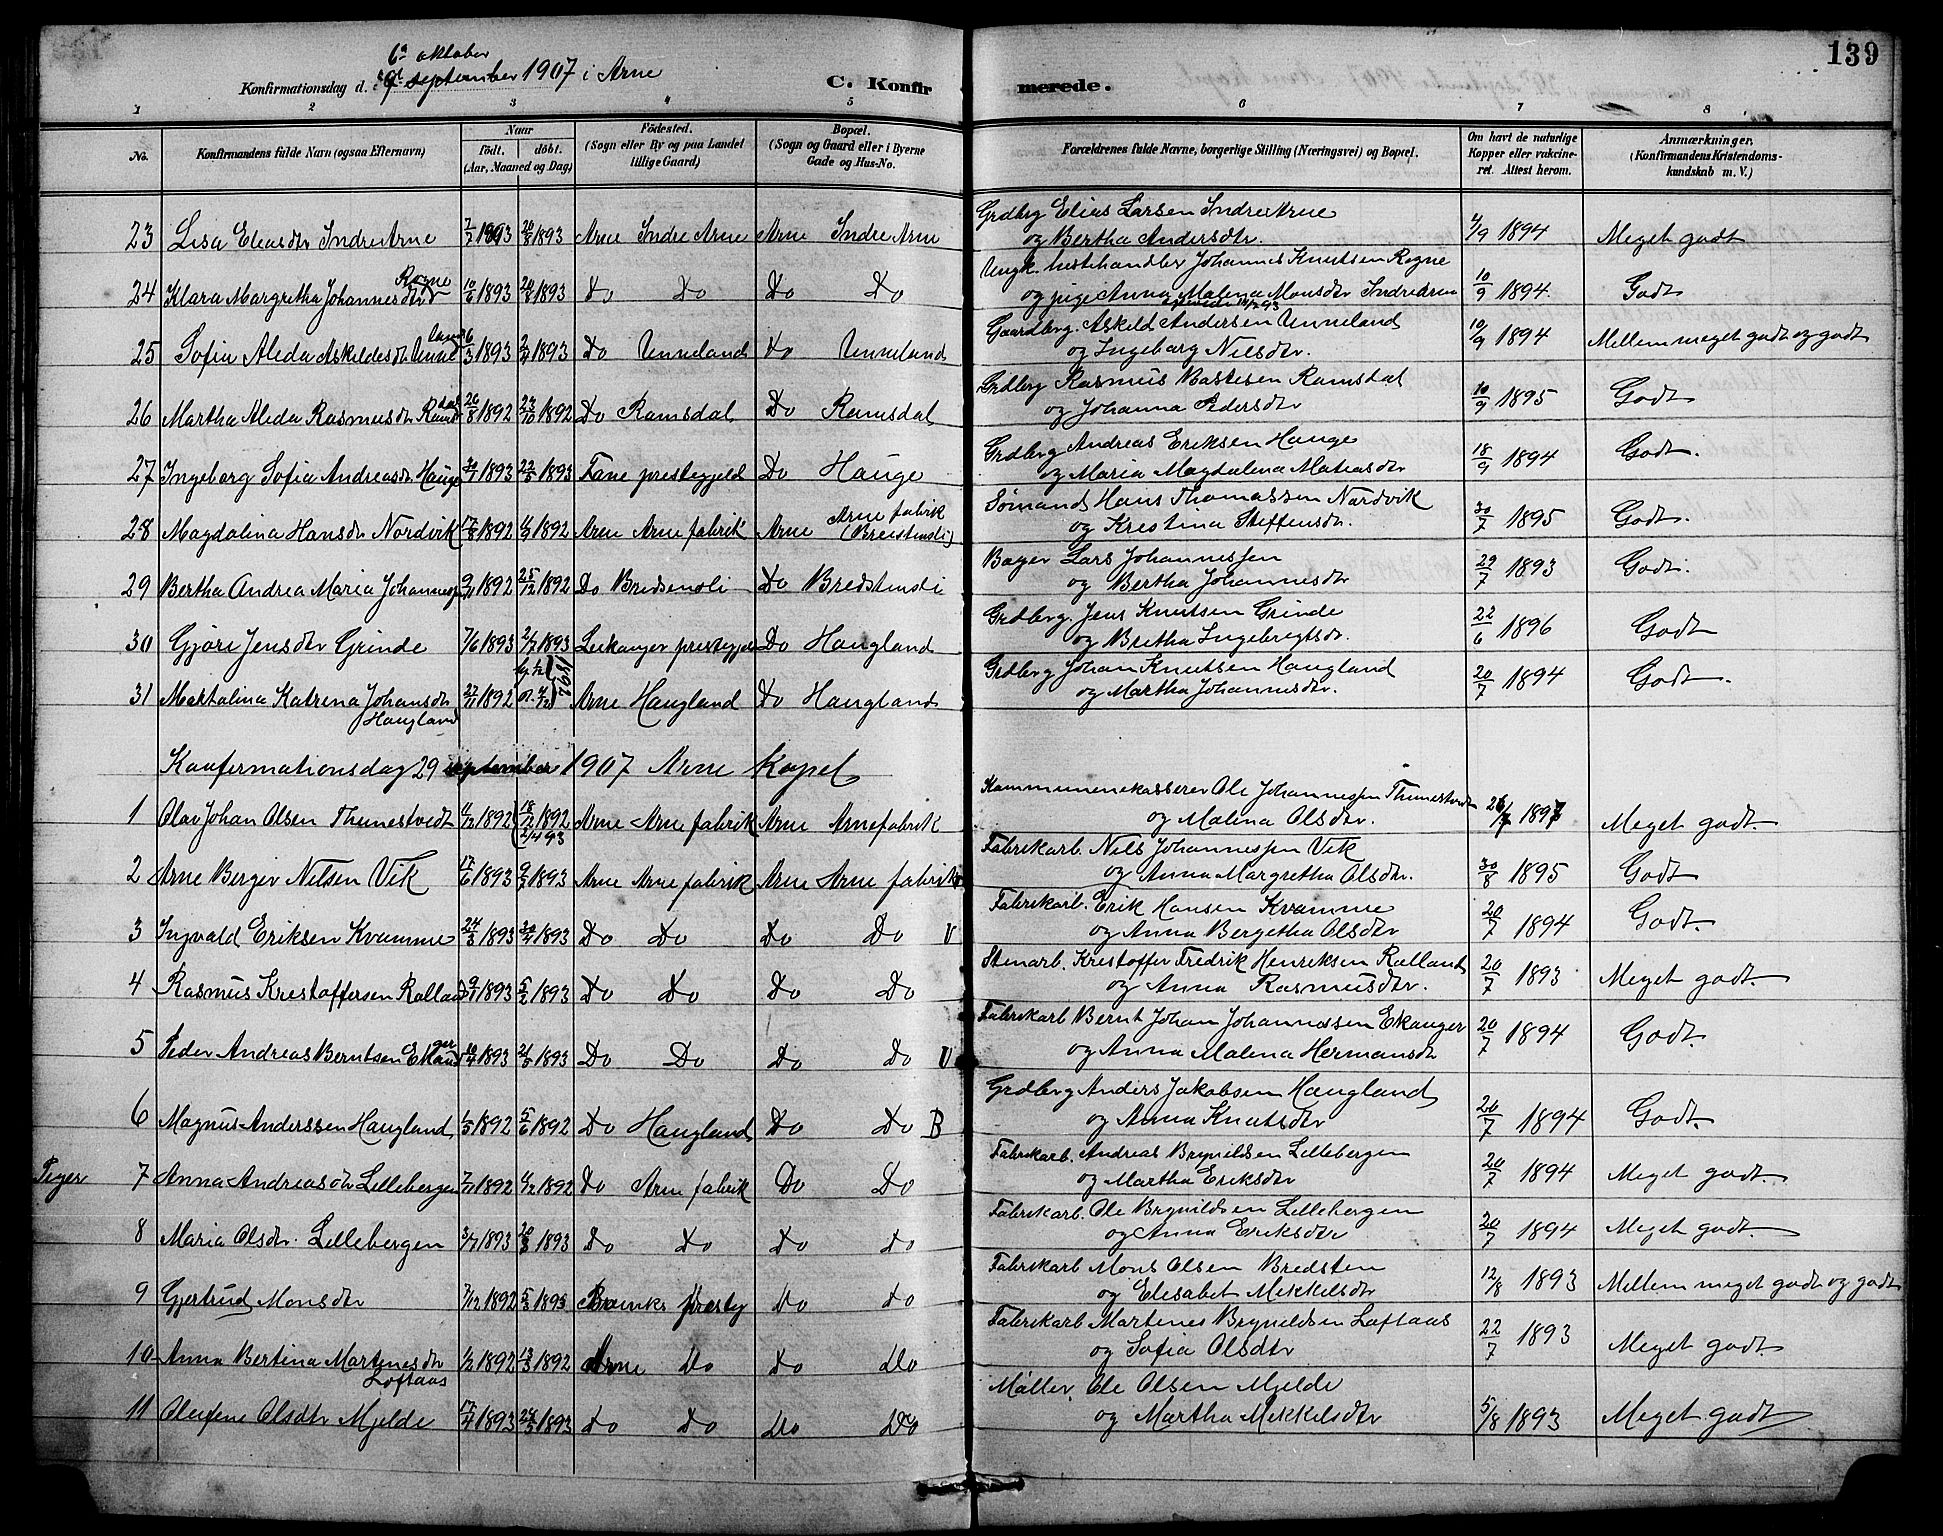 139
6te oktober
Konfirmationsdag d. september 1907 i Arne
C. Konfirmerede.
1 2 3 4 5 6 7 8
No. | Konfirmandens fulde Navn (ogsaa Efternavn) | Naar Födt. döbt. (Aar, Maaned og Dag) | Födested. (Sogn eller By og paa Landet tillige Gaard) | Bopæl. (Sogn og Gaard eller i Byerne Gade og Hus-No. | Forældrenes fulde Navne, borgerlige Stilling (Næringsvei) og Bopæl. | Om havt de naturlige Kopper eller vakcineret. Attest herom. | Anmærkninger, (Konfirmandens Kristendomskundskab m. V.)
23 Lisa Eliasdtr Indre Arne 7/7 1893 20/8 1893 Arne Indre Arne Arne Indre Arne Grdbrg Elias Larsen Indre Arne 4/9 1894 Meget godt
og Bertha Andersdtr.
24 Klara Margretha Johannesdtr Rogne 10/6 1893 20/8 1893 Do Do Do Do Ungk. hestehandler Johannes Knutsen Rogne 10/9 1894. Godt
og pige Anna Malena Monsdtr
25 Sofia Aleda Askeldsdtr Unneland 1893 1893 Do Unneland Do Unneland Gaardbrg. Askeld Andersen Unneland 10/9 1894 Mellem meget godt og godt
og Ingeborg Nilsdtr.
26 Martha Aleda Rasmusdtr Ramsdal 20/8 1892 23/10 1892 Do Ramsdal Do Ramsdal Grdbrg Rasmus Bastesen Ramsdal 10/9 1895 Godt
og Johanna Pedersdtr
27 Ingeborg Sofia Andreasdtr Hauge 1893 1893 Fane prestegjeld Do Hauge Grdbrg Andreas Eriksen Hauge 18/9 1894 Godt.
og Maria Magdalena Matiasdtr
28 Magdalina Hansdtr Nordvik 1892 1892 Arne Arne fabrik Arne Arne fabrik Sømand Hans Thomassen Nordvik 30/7 1895 Godt.
og Krestina Steffensdtr.
29 Bertha Andrea Maria Johannesen 1892 25/12 1892 Do Bredsensli Do Bredstensli Bager Lars Johannessen 29/7 1893 Godt.
og Bertha Johannesdtr
30 Gjøri Jensdtr Grinde 7/6 1893 2/7 1893 Leikanger prestegjeld Do Haugland Grdbrg. Jens Knutsen Grinde 22/6 1896 Godt
og Bertha Ingebregtsdtr.
31 Maktalina Katrena Johansdtr 1892 1892 Arne Haugland Do Haugland Grdbrg Johan Knutsen Haugland 20/7 1894 Godt.
Haugland og Martha Johannesdtr.
Konfermationsdag 29 september 1907 Arne Kapel
1 Olav Johan Olsen Thunestvedt 1892 18/12 1892 Arne Arne fabrik Arne Arne fabrik Kommunenekasserer Ole Johannessen Thunestvedt 1897 Meget godt.
og Malena Olsdtr.
2 Arne Berger Nilsen Vik 17/6 1893 1893 Arne Arne fabrik Arne Arne fabrik Fabrikarb. Nils Johannessen Vik 30/8 1895 Godt
og Anna Margretha Olsdtr.
3 Ingvald Eriksen Kvamme 24/3 1893 30/4 1893 Do Do Do Do V Fabrikarb. Erik Hansen Kvamme 20/7 1894 Godt.
og Anna Bergetha Olsdtr
4 Rasmus Krestoffersen Ralland 1893 5/2 1893 Do Do Do Do Stenarb. Krestoffer Fredrik Henriksen Ralland 20/7 1893 Meget godt.
og Anna Rasmusdtr.
5 Peder Andreas Berntsen Ekanger 10/4 1893 21/5 1893 Do Do Do Do V Fabrikarb Bernt Johan Johannessen Ekanger 20/7 1894 Godt.
og Anna Malena Hermansdtr
6 Magnus Anderssen Haugland 1/5 1892 5/6 1892 Do Haugland Do Do B Grdbrg Anders Jakobsen Haugland 20/7 1894 Godt.
og Anna Knutsdtr
Piger 7 Anna Andreasdtr Lillebergen 1892 1892 Do Arne fabrik Do Do Fabrikarb. Andreas Brynildsen Lillebergen 20/7 1894 Meget godt.
og Martha Eriksdtr
8 Maria Olsdtr. Lillebergen 1893 20/8 1893 Do Do Do Do Fabrikarb. Ole Brynildsen Lillebergen 20/7 1894 Meget godt.
og Anna Eriksdtr
9 Gjertrud Monsdtr 7/12 1892 5/3 1893 presteg Do Do Fabrikarb Mons Olsen Bredsten 12/8 1893 Mellem meget godt og godt
og Elesabet Mikkelsdtr
10 Anna Bertina Martinesdtr 1/2 1892 13/3 1892 Arne Do Do Do Fabrikarb Martenes Brynildsen Loftaas 22/7 1893 Meget godt.
Loftaas og Sofia Olsdtr
11 Olefine Olsdtr Mjelde 17/4 1893 28/5 1893 Do Do Do Do Møller. Ole Olsen Mjelde 5/8 1893 Meget godt
og Martha Mikkelsdtr